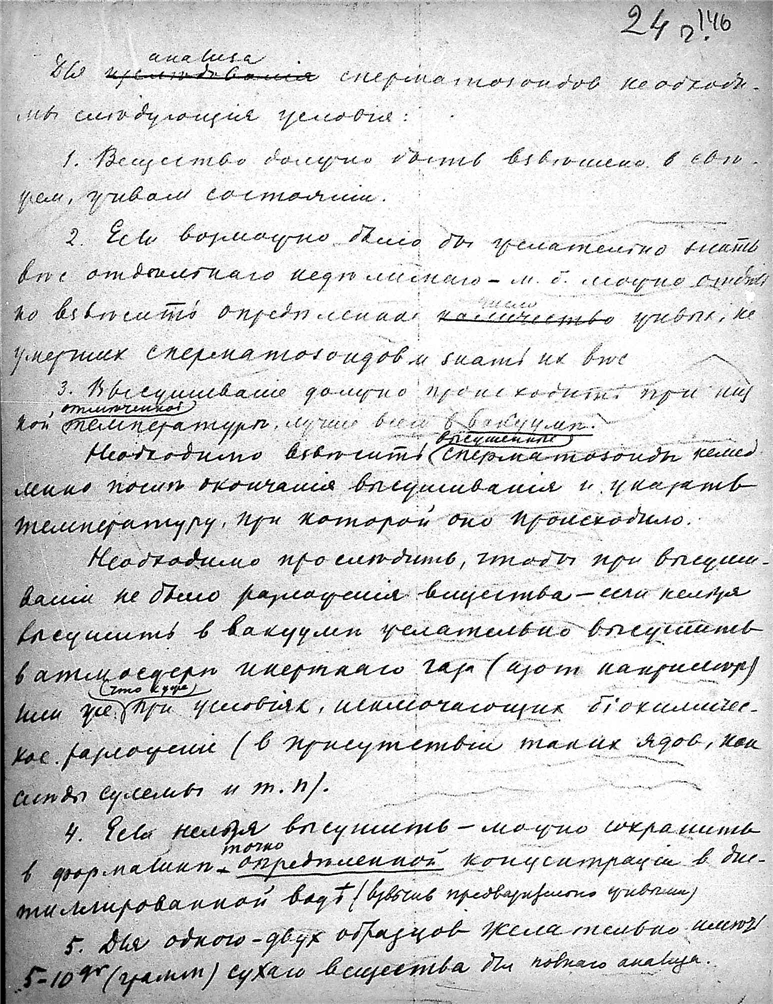 24 г. 146
анализа
Для изследованія сперматозоидов необходи-
мы следующия условія:
1. Вещество должно быть взвѣшено в све-
жем, живом состоянии.
2. Если возможно было бы желательно знать
вѣс отдѣльнаго недѣлимаго – м. б. можно
но взвѣсить определенное
число
количество живых, не
умерших сперматозоидов и знать их вѣс
3. Высушиваніе должно происходить при низ
кой температуры, лучше всего в вакуумѣ.
высушенные
Необходимо взвѣсить сперматозоиды немед
ленно послѣ окончанія высушиванія и указать
температуру, при которой оно происходило.
Необходимо прослѣдить, чтобы при высуши-
ваніи не было разложенія вещества – если нельзя
высушить в вакуумѣ желательно высушить
в атмосферѣ инертнаго газа (азот например)
(что хуже)
или же при условіях, исключающих біохимичес-
кое разложеніе (в присутствіи таких ядов, как
слѣды сулемы и т. п).
4. Если нельзя высушить – можно сохранить
точно
в формалинѣ – определенной концентраціи в дис-
тиллированной водѣ (взвѣсив предварительно живыми)
5. Для одного-двух образцов желательно имѣть
5-10 gr (грамм) сухаго вещества для полнаго анализа.